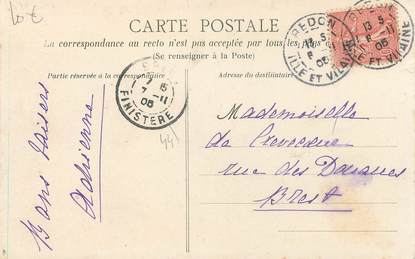 10 €
CARTE POSTALE
La correspondance au recto n'est pas acceptée par tous les pays
(Se renseigner à la Poste)
Partie réservée à la correspondance
Adresse du destinataire
REDON
13 5
6 -11
05
ILLE ET VILAINE
REDON
13 5
6 -11
05
ILLE ET VILAINE
7 -11
05
FINISTERE
441
Mademoiselle
de
rue des Douanes
Brest
Bons baisers
Adrienne